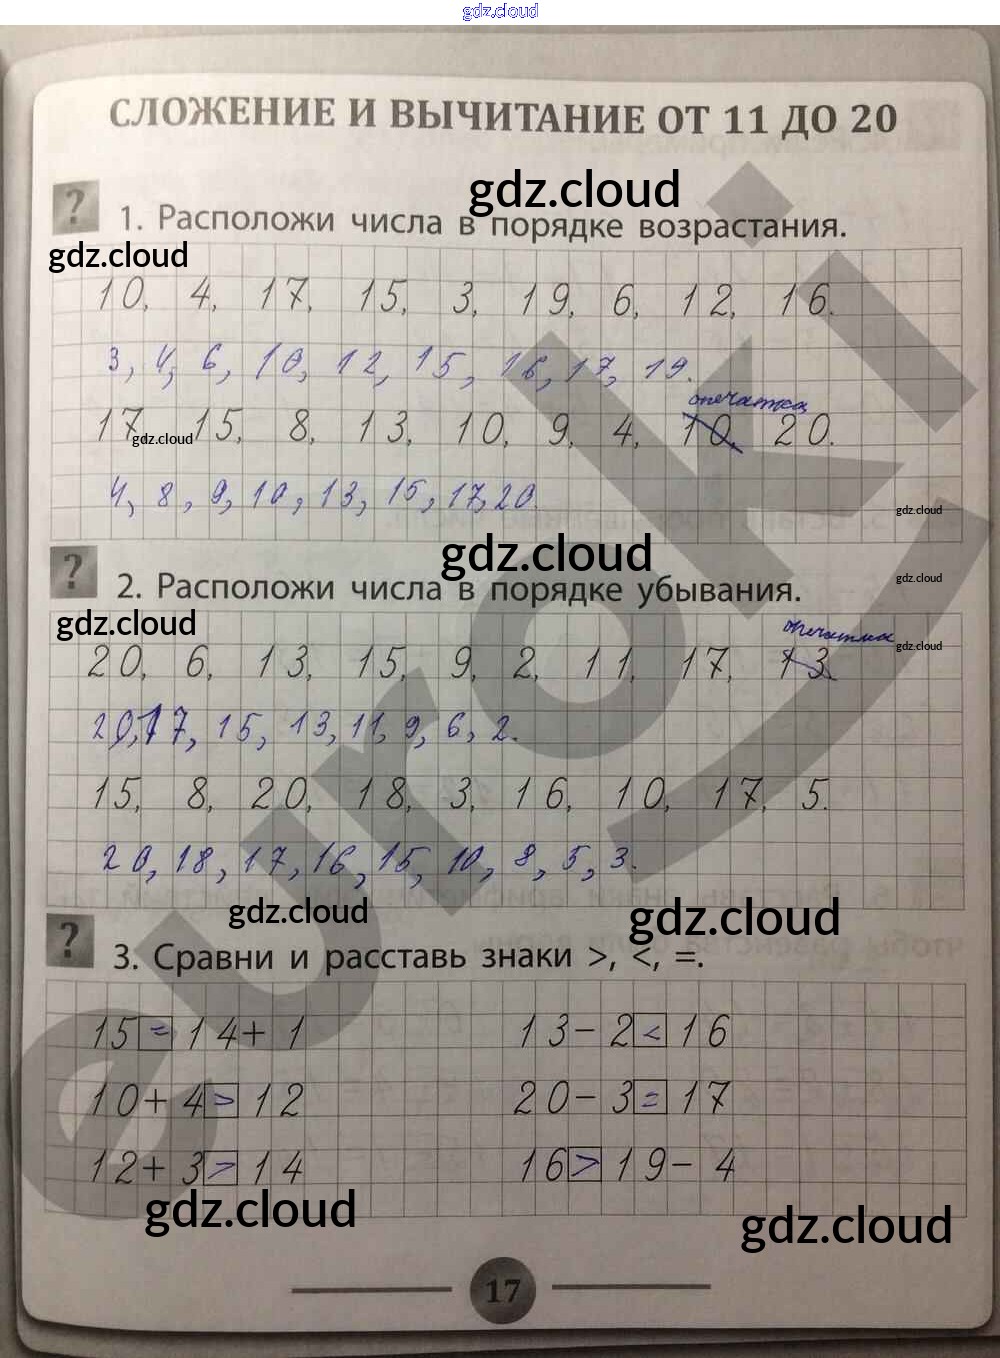 gdz.cloud
СЛОЖЕНИЕ И ВЫЧИТАНИЕ ОТ 11 ДО 20
gdz.cloud
? 1. Расположи числа в порядке возрастания.
gdz.cloud
10, 4, 17, 15, 3, 19, 6, 12, 16.
3, 4, 6, 10, 12, 15, 16, 17, 19.
опечатка
17, 15, 8, 13, 10, 9, 4, 10, 20.
gdz.cloud
4, 8, 9, 10, 13, 15, 17, 20.
gdz.cloud
gdz.cloud
? 2. Расположи числа в порядке убывания.
gdz.cloud
gdz.cloud
опечатка
gdz.cloud
20, 6, 13, 15, 9, 2, 11, 17, 13
20, 17, 15, 13, 11, 9, 6, 2.
15, 8, 20, 18, 3, 16, 10, 17, 5.
20, 18, 17, 16, 15, 10, 8, 5, 3.
gdz.cloud gdz.cloud
? 3. Сравни и расставь знаки >, <, =.
15 = 14 + 1 13 - 2 < 16
10 + 4 > 12 20 - 3 = 17
12 + 3 > 14 16 > 19 - 4
gdz.cloud gdz.cloud
17
euroki